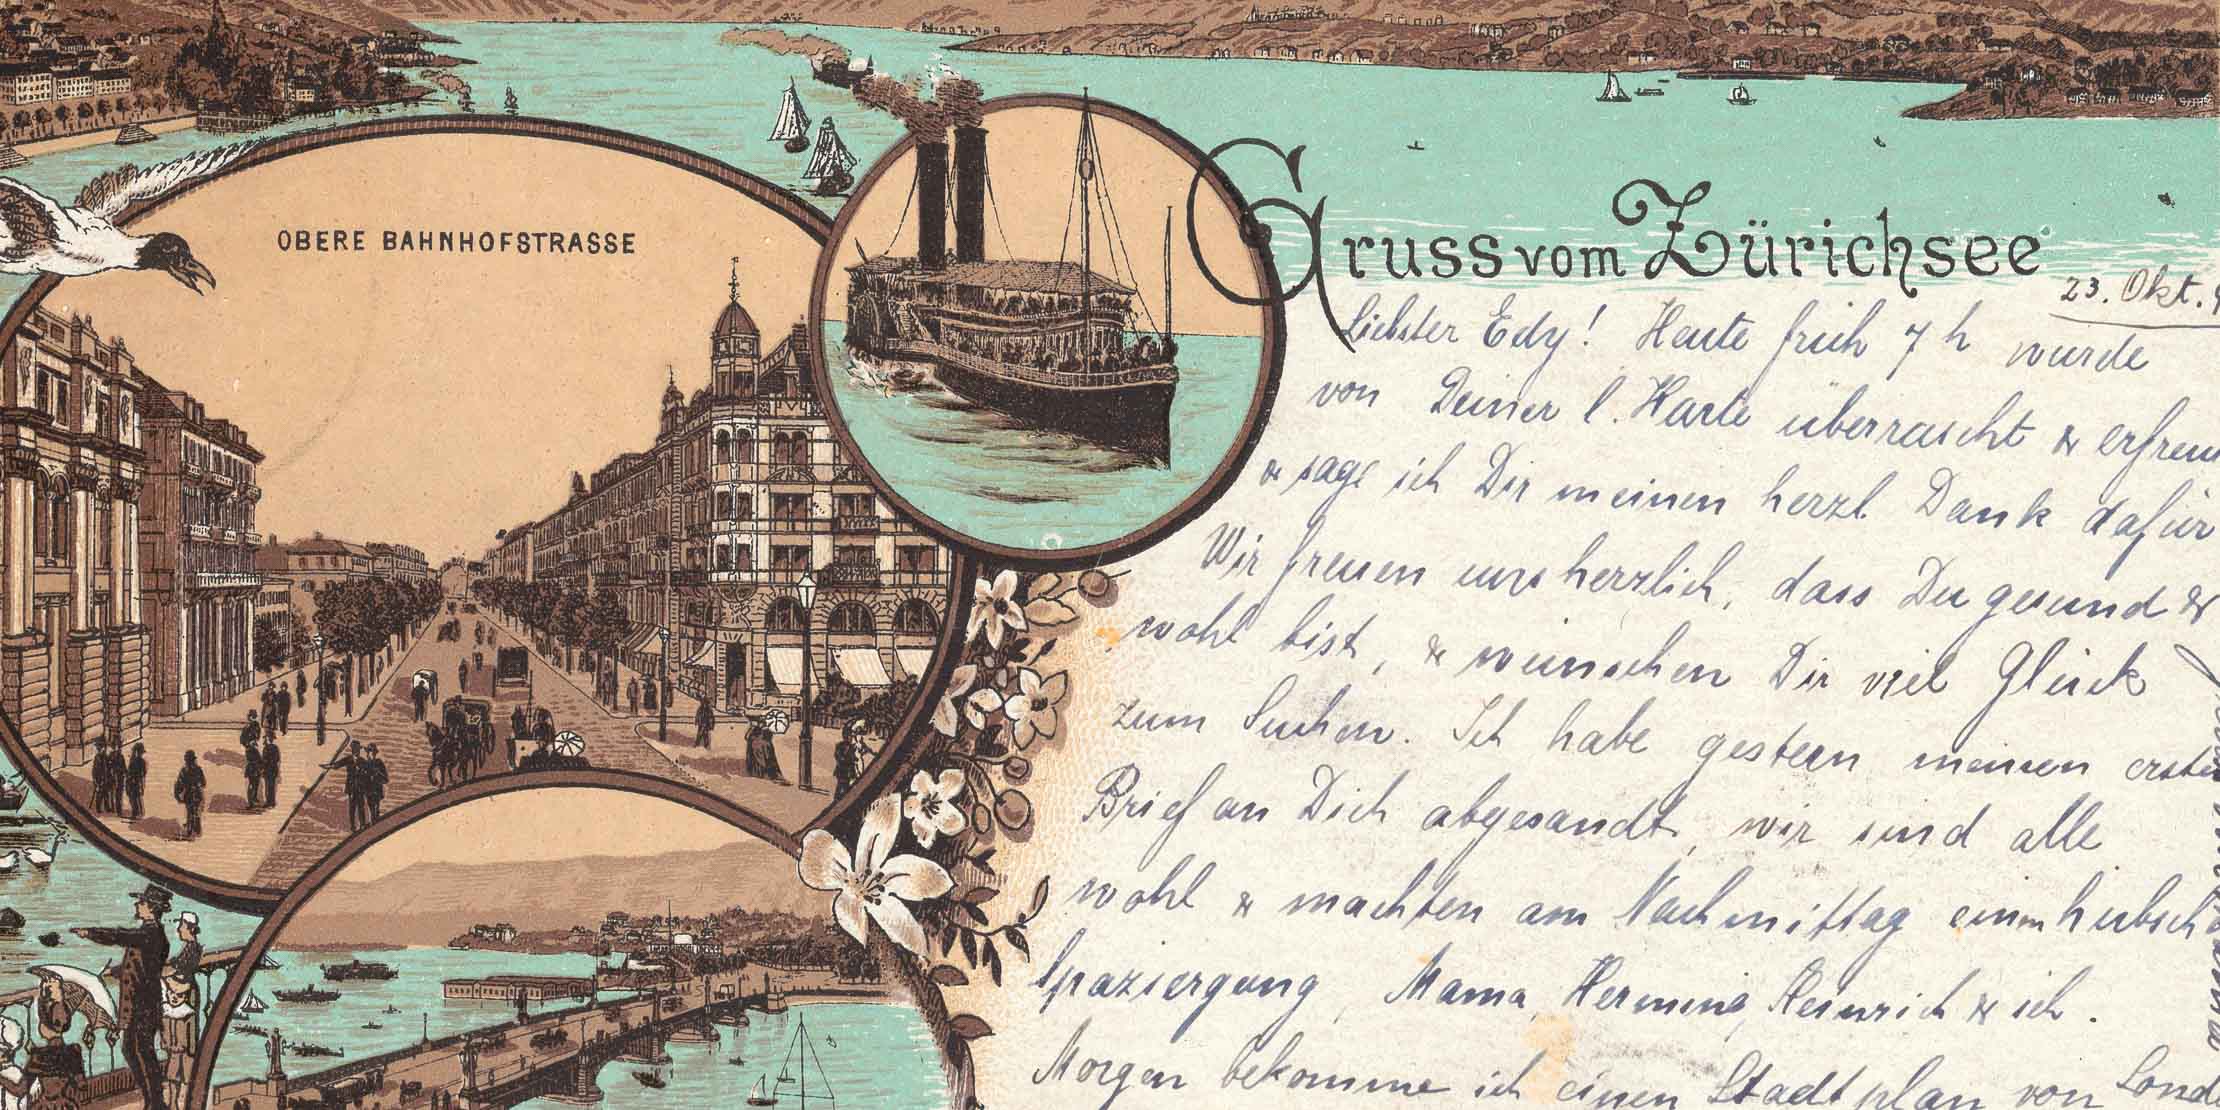 OBERE BAHNHOFSTRASSE
Gruss vom Zürichsee
23. Okt.
Liebster Edy! Heute früh 7 h wurde
von Deiner l. Karte überrascht & erfreu
& sage ich Dir meinen herzl. Dank dafür
Wir freuen uns herzlich, dass Du gesund &
wohl bist, & wünschen Dir viel Glück
zum Suchen. Ich habe gestern meinen erste
Brief an Dich abgesandt, wir sind alle
wohl & machten am Nachmittag einen hübsch
Spaziergang, Mama, Hermina, Heinrich & ich.
Morgen bekomme ich einen Stadtplan von Lond